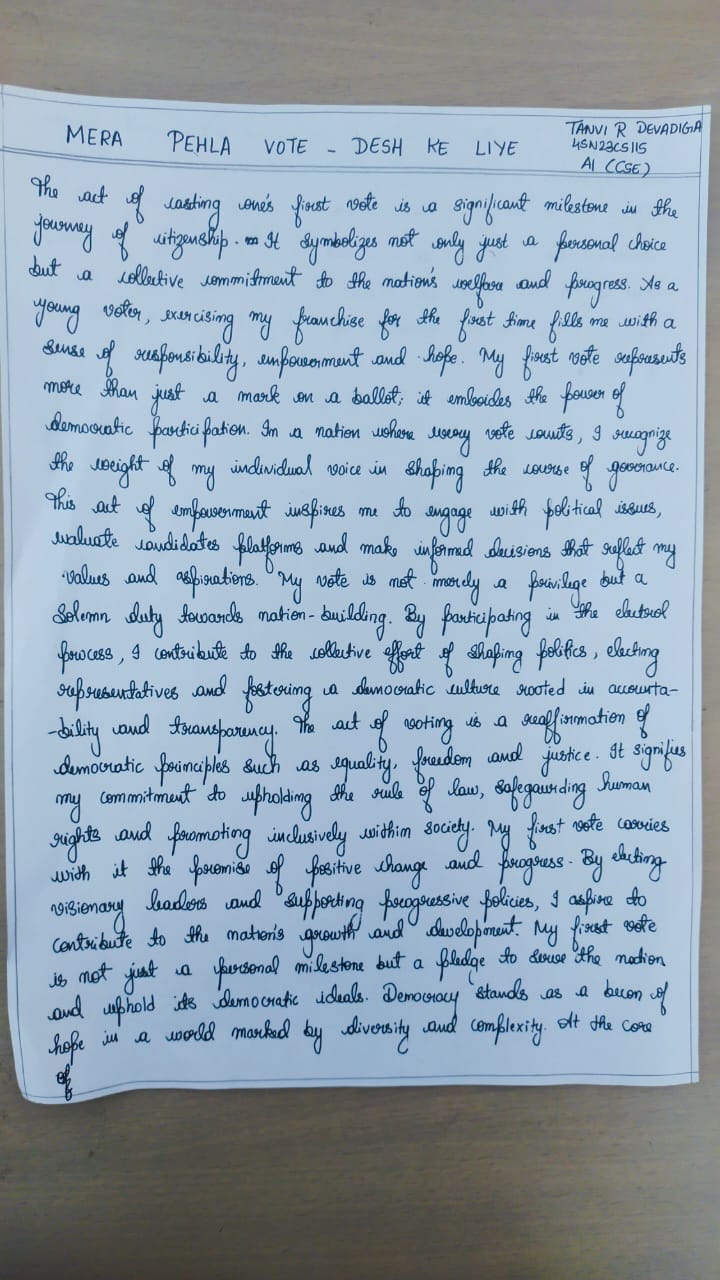 MERA PEHLA VOTE - DESH KE LIYE
TANVI R DEVADIGA
4SN23CS115
AI (CSE)
The act of casting one's first vote is a significant milestone in the
journey of citizenship. It symbolizes not only just a personal choice
but a collective commitment to the nation's welfare and progress. As a
young voter, exercising my franchise for the first time fills me with a
sense of responsibility, empowerment and hope. My first vote represents
more than just a mark on a ballot; it emboides the power of
democratic participation. In a nation where every vote counts, I recognize
the weight of my individual voice in shaping the course of goverance.
This act of empowerment inspires me to engage with political issues,
evaluate candidates platforms and make informed decisions that reflect my
values and aspirations. My vote is not merely a privilege but a
solemn duty towards nation-building. By participating in the electrol
process, I contribute to the collective effort of shaping politics, electing
representatives and fostering a democratic culture rooted in accounta-
-bility and transparency. The act of voting is a reaffirmation of
democratic principles such as equality, freedom and justice. It signifies
my commitment to upholding the rule of law, safegaurding human
rights and promoting inclusively within society. My first vote carries
with it the promise of positive change and progress. By electing
visionary leaders and supporting progressive policies, I aspire to
contribute to the nation's growth and development. My first vote
is not just a personal milestone but a pledge to serve the nation
and uphold its democratic ideals. Democracy stands as a becon of
hope in a world marked by diversity and complexity. At the core
of